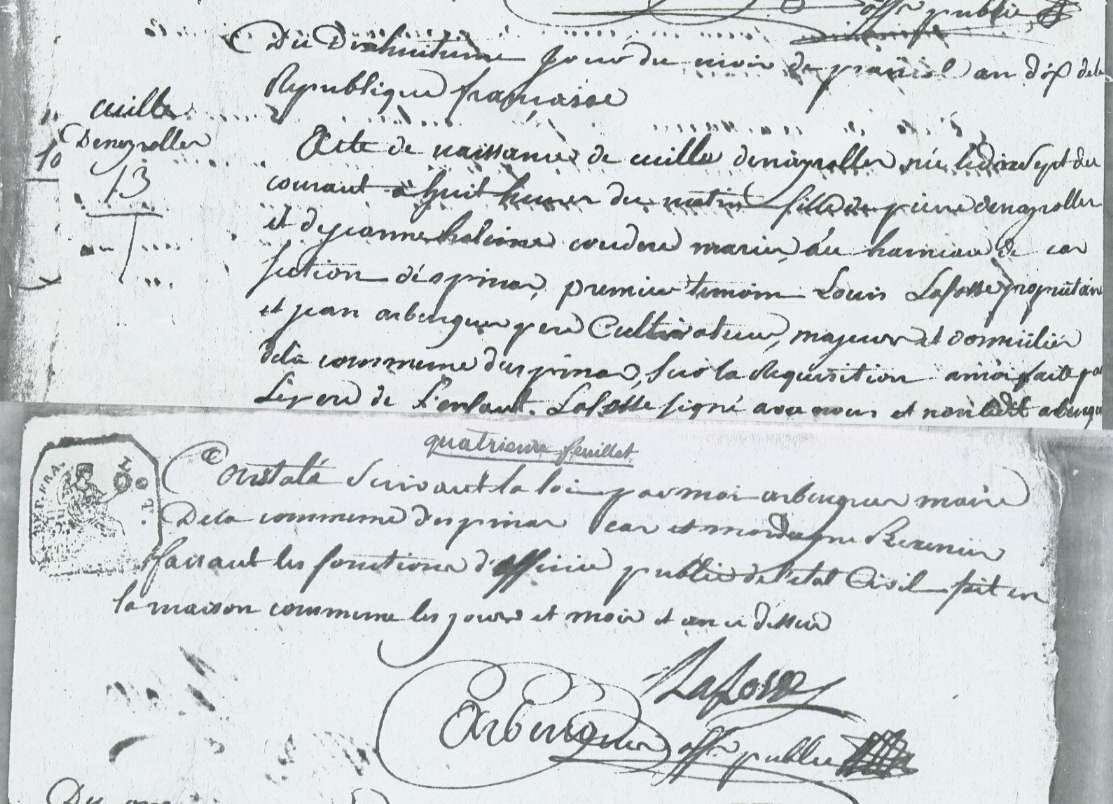 offr public
Du Dixhuitieme jour du mois de prairial an dix de la
Republique française
cuille
Denayrolles
10
13
1
Acte de naissance de cuille denayrolles née le dixsept du
courant a huit heures du matin fille de pierre denayrolles
et de jeanne coudere mariés, du hameau de car
section despinas, premier temoin Louis Lafosse propriétaire
et jean arberquier pere Cultivateur, majeurs et domicilier
de la commune despinas, sur la Requisition a moi faite par
Le pere de l'enfant. Lafosse signé avec nous et non ledit
quatrieme feuillet
Constaté Suivant la loi par moi maire
De la commune despinas car et
faisant les fonctions d'officier public de l'etat Civil fait en
la maison commune les jours et mois et an ci dessus
Lafosse
offr public
Du